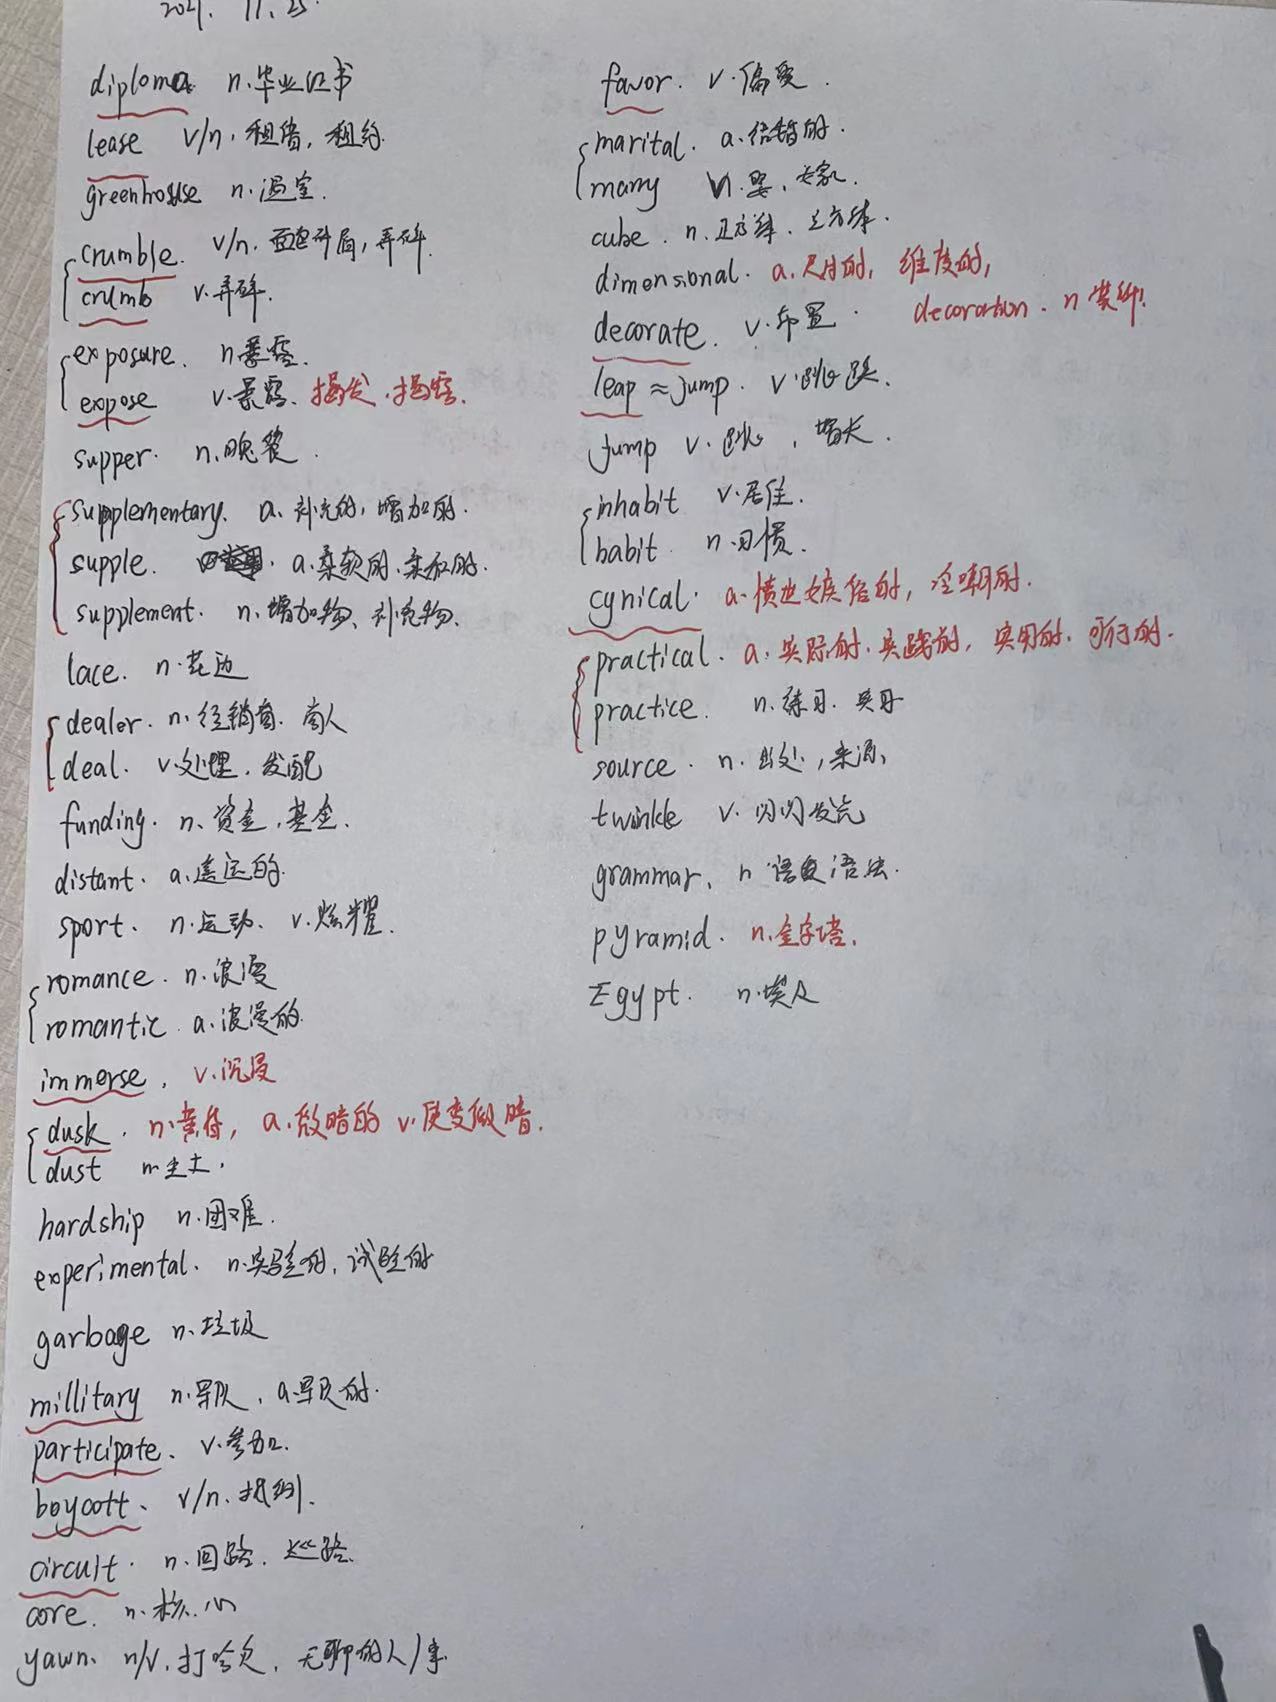 2021. 11. 25.
diploma n. 毕业证书
lease v/n. 租借, 租约
greenhouse n. 温室.
crumble. v/n. 面包碎屑, 弄碎.
crumb v. 弄碎.
exposure. n. 暴露.
expose v. 暴露、揭发、揭露.
supper. n. 晚餐.
supplementary. a. 补充的, 增加的.
supple. a. 柔软的. 柔和的.
supplement. n. 增加物、补充物.
lace. n. 花边
dealer. n. 经销商. 商人
deal. v. 处理, 发配
funding. n. 资金, 基金.
distant. a. 遥远的.
sport. n. 运动. v. 炫耀.
romance. n. 浪漫
romantic a. 浪漫的.
immerse, v. 沉浸
dusk. n. 黄昏, a. 微暗的 v. 使变微暗.
dust n. 尘土.
hardship n. 困难.
experimental. n. 实验的, 试验的
garbage n. 垃圾
millitary n. 军队, a. 军队的.
participate. v. 参加.
boycott. v/n. 抵制.
circuit. n. 回路. 巡路.
core. n. 核心
yawn. n/v. 打哈欠, 无聊的人/事.
favor. v. 偏爱.
marital. a. 结婚的.
marry v. 娶, 嫁.
cube. n. 正方体. 立方体.
dimensional. a. 尺寸的, 维度的,
decorate. v. 布置. decoration. n 装饰!
leap ≈ jump. v. 跳跃.
jump v. 跳, 增长.
inhabit v. 居住.
habit n. 习惯.
cynical. a. 愤世嫉俗的, 冷嘲的.
practical. a. 实际的. 实践的, 实用的. 可行的.
practice. n. 练习. 实习
source. n. 出处, 来源,
twinkle v. 闪闪发光
grammar. n 语法.
pyramid. n. 金字塔.
Egypt. n. 埃及